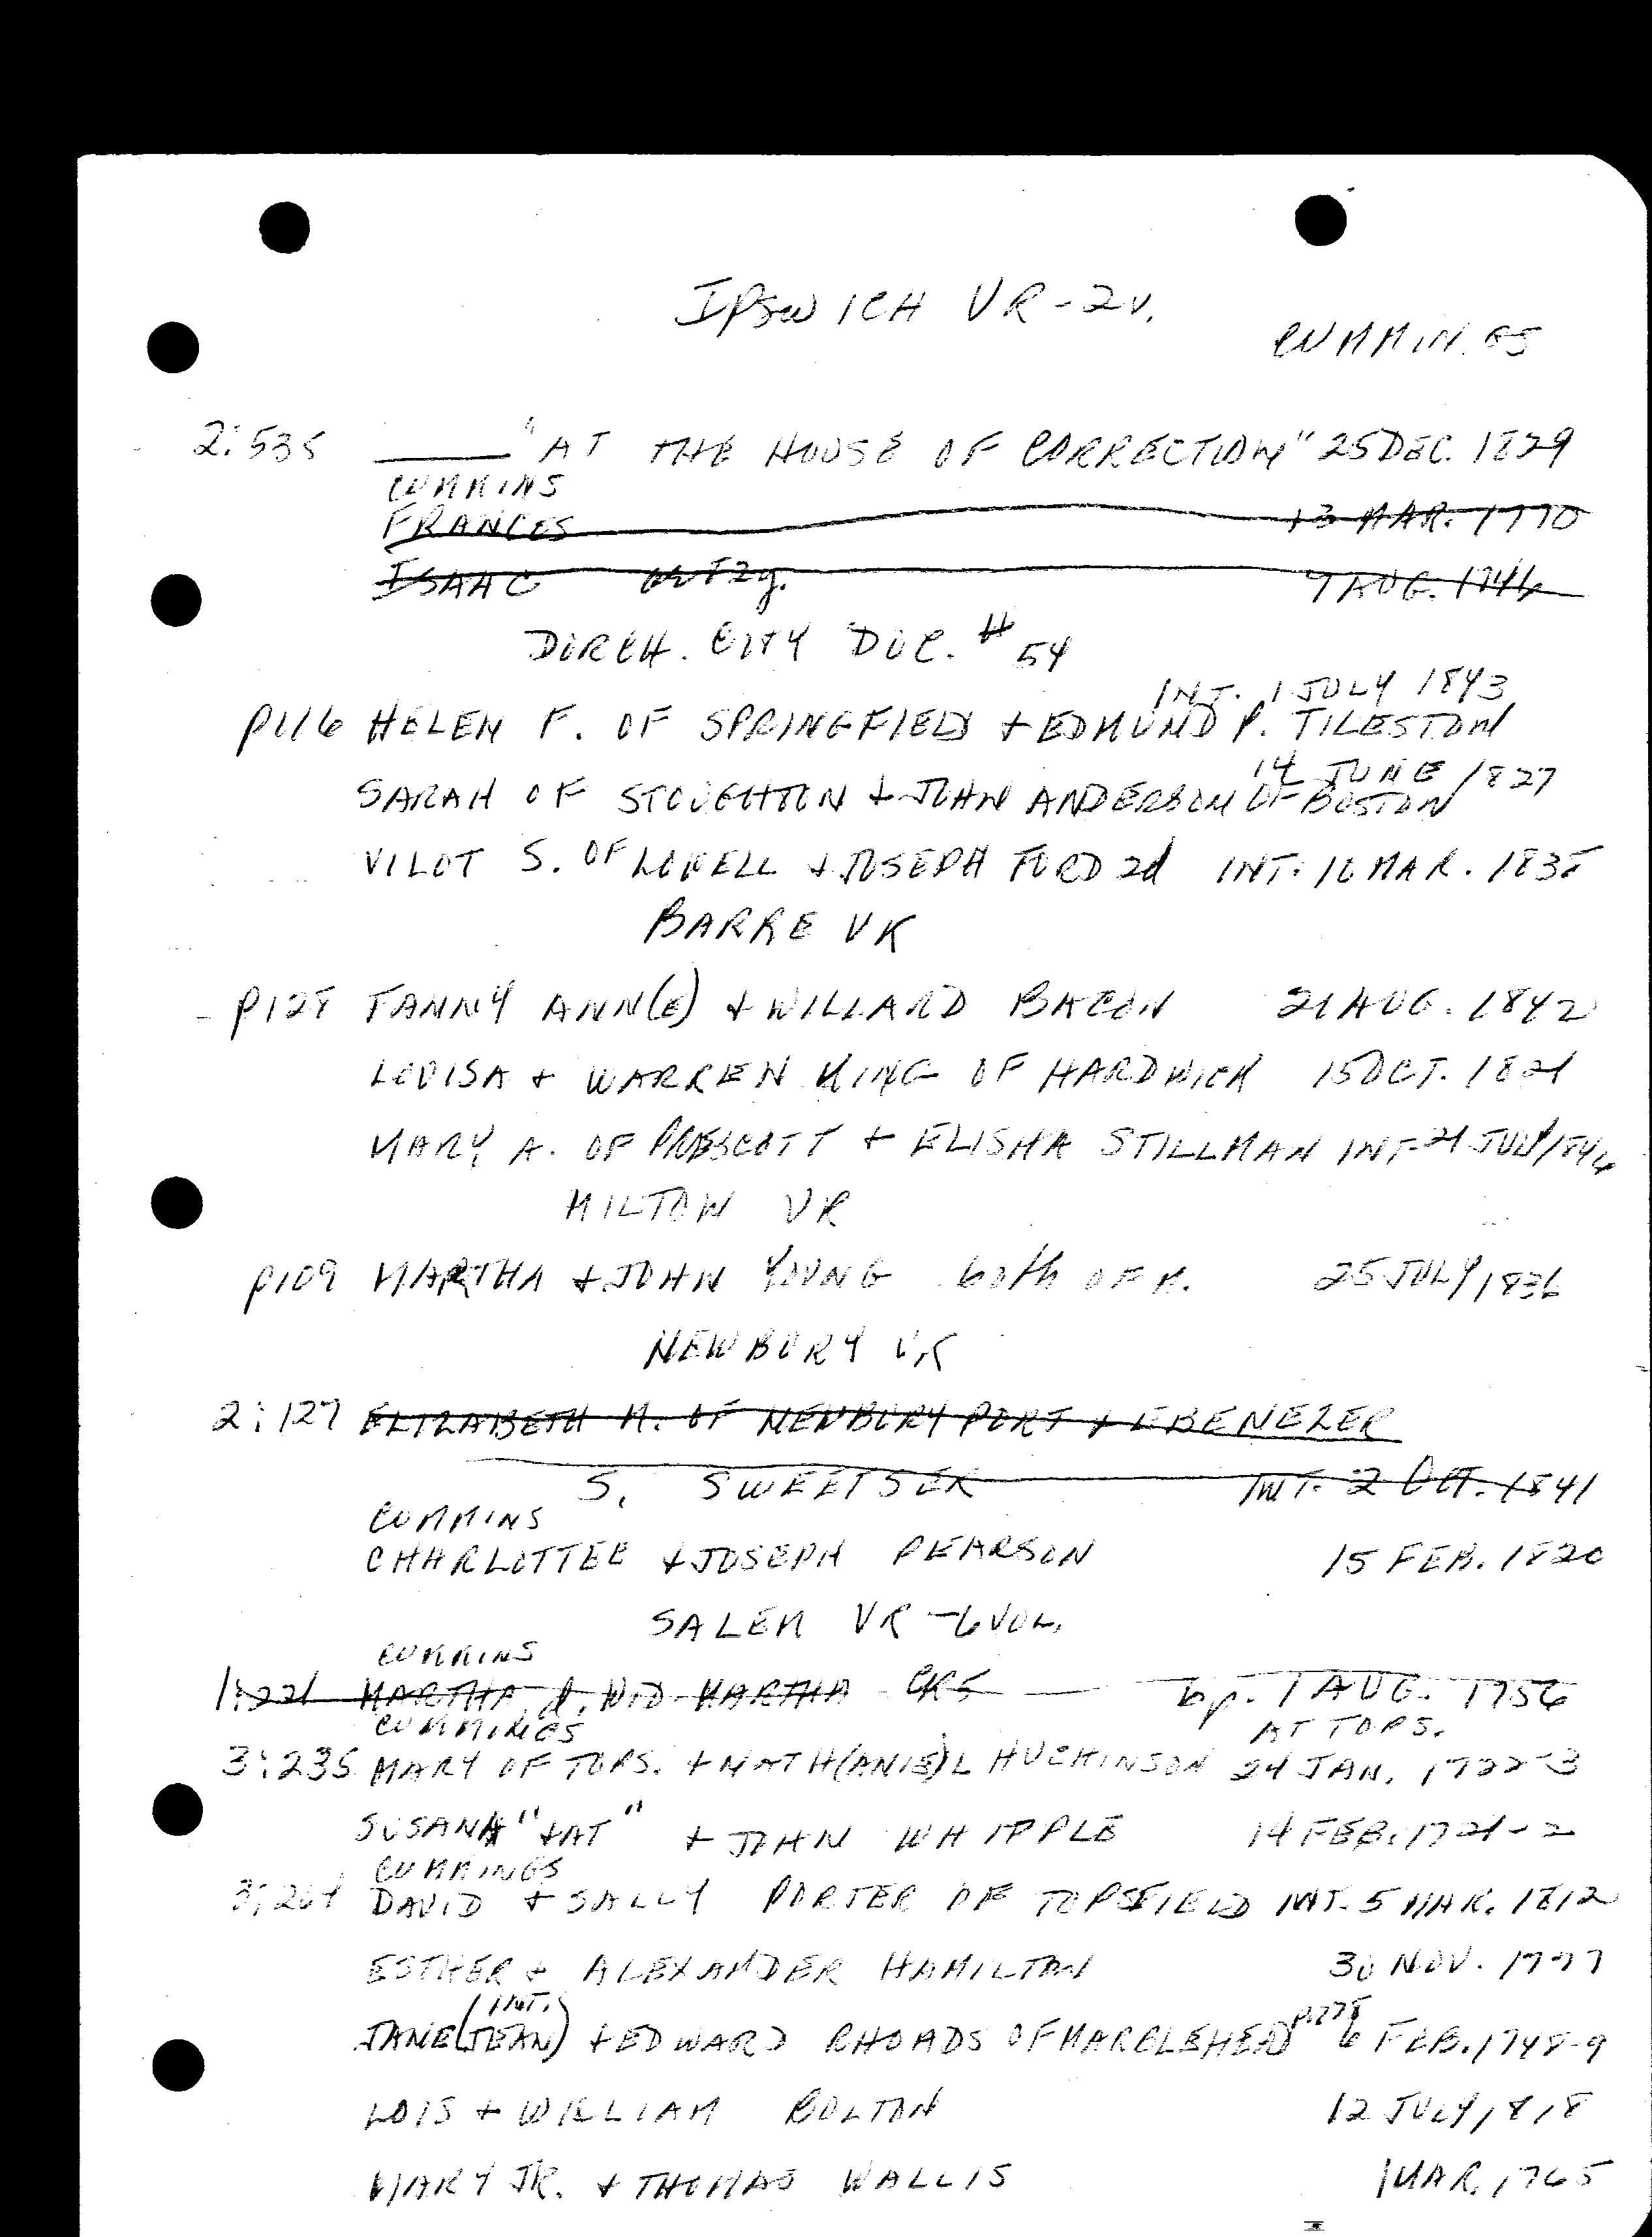 IPSWICH VR - 2V.
CUMMINGS
2:535 "AT THE HOUSE OF CORRECTION" 25 DEC. 1829
CUMMINS
FRANCES 13 MAR. 1770
ISAAC 7 AUG. 1746
DORCH. CITY DOC. # 54
INT. 1 JULY 1843
p116 HELEN F. OF SPRINGFIELD + EDMUND P. TILESTON
14 JUNE 1827
SARAH OF STOUGHTON + JOHN ANDERSON OF BOSTON
VILOT S. OF LOWELL + JOSEPH FORD 2d INT. 10 MAR. 1835
BARRE VR
p128 FANNY ANN(E) + WILLARD BACON 21 AUG. 1842
LOUISA + WARREN KING OF HARDWICK 15 OCT. 1821
MARY A. OF PRESCOTT + ELISHA STILLMAN INT. 21 JULY 1846
MILTON VR
p109 MARTHA + JOHN YOUNG both OF M. 25 JULY 1836
NEWBURY VR
2:127 ELIZABETH M. OF NEWBURYPORT + EBENEZER
S. SWEETSER INT. 2 OCT. 1841
CUMMINS
CHARLOTTEE + JOSEPH PEARSON 15 FEB. 1820
SALEM VR - 6 VOL.
CUMMINS
1:221 MARTHA, d. WID. MARTHA CR5 bp. 1 AUG. 1756
CUMMINGS AT TOPS.
3:235 MARY OF TOPS. + NATH(ANIE)L HUCHINSON 24 JAN. 1722-3
SUSANA "+AT" + JOHN WHIPPLE 14 FEB. 1721-2
CUMMINGS
3:261 DAVID + SALLY PORTER OF TOPSFIELD INT. 5 MAR. 1812
ESTHER + ALEXANDER HAMILTON 30 NOV. 1777
JANE (INT. JEAN) + EDWARD RHOADS OF MARBLEHEAD 6 FEB. 1748-9
LOIS + WILLIAM BOLTON 12 JULY 1818
MARY JR. + THOMAS WALLIS 1 MAR. 1765